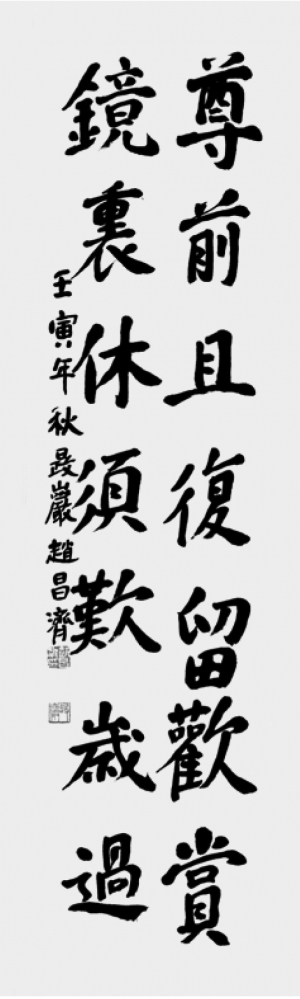 尊前且復留歡賞
鏡裏休須歎歲過
壬寅年秋 巖趙昌濟